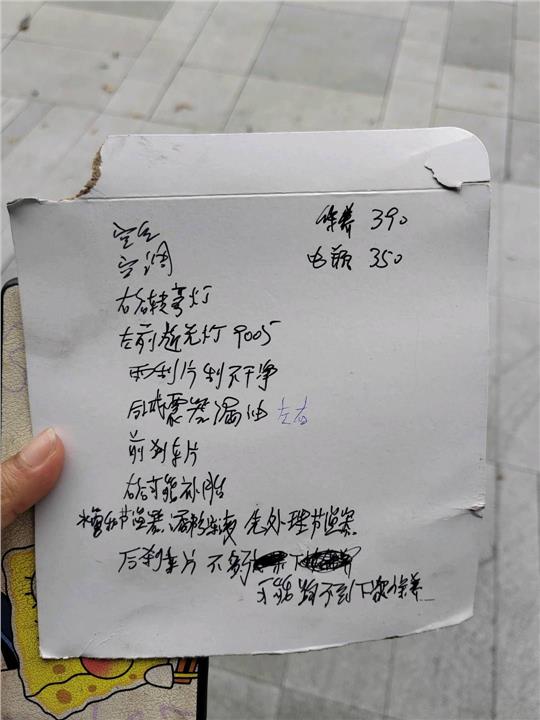 空气
空调
保养 390
电瓶 350
右后转弯灯
左前远光灯 9005
雨刮片刮不干净
后减震器漏油 左右
前刹车片
右后可能补胎
水壶和节温器漏防冻液 先处理节温器
后刹车片 不多
可能跑不到下次保养